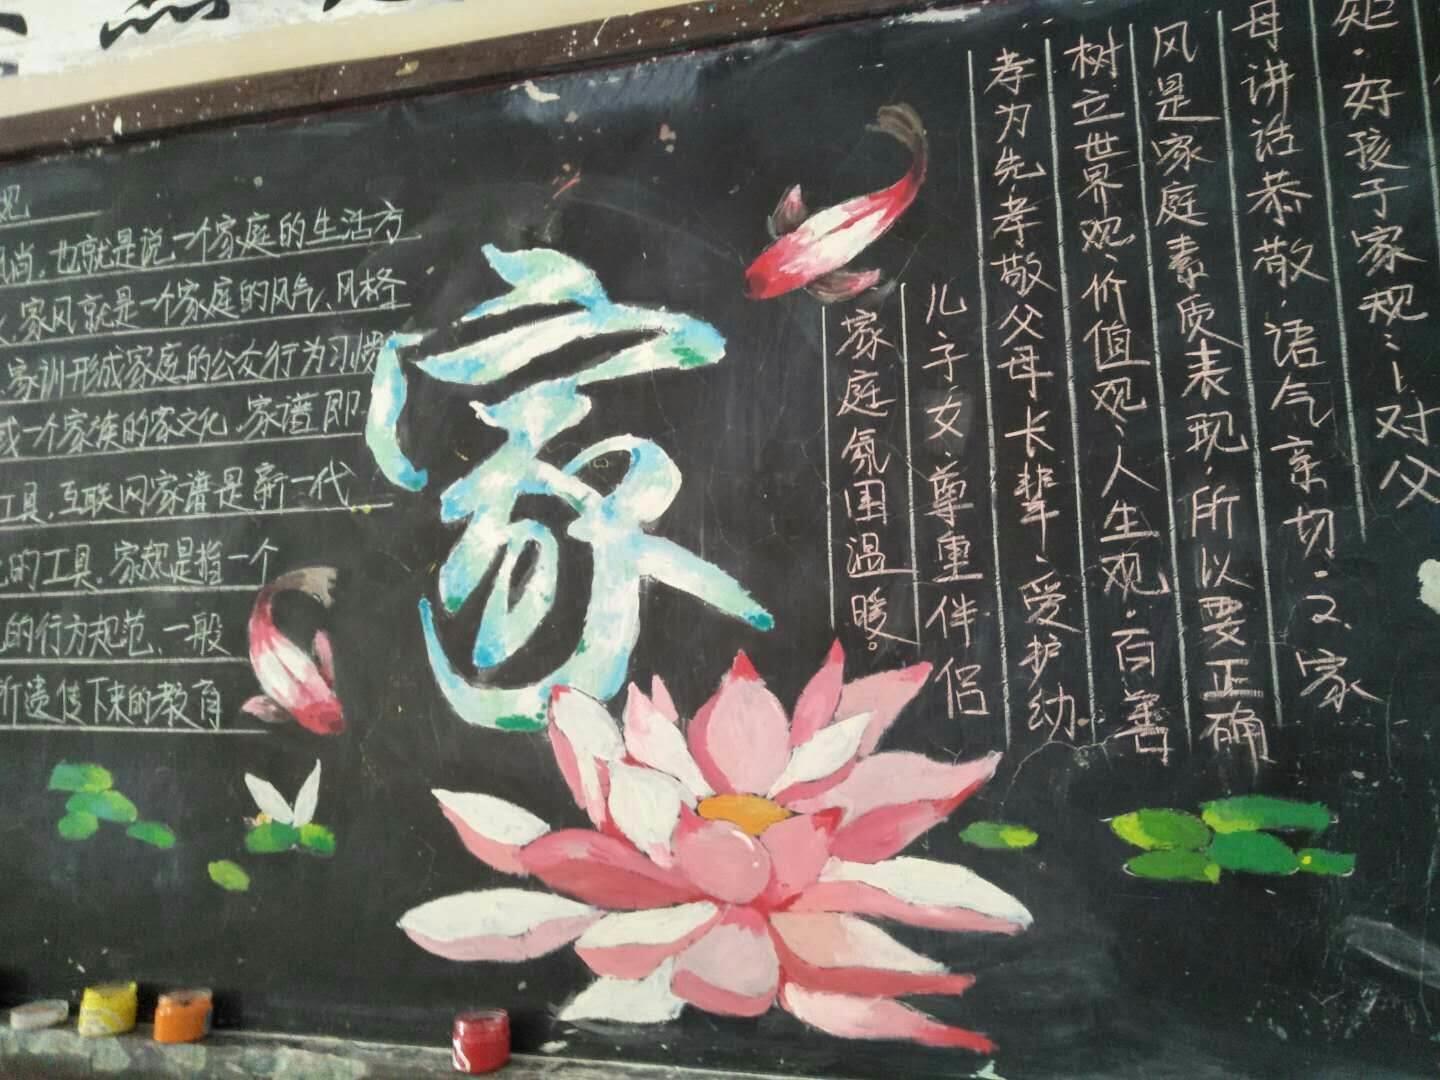 规
风尚,也就是说一个家庭的生活方
家风就是一个家庭的风气、风格
家训形成家庭的公众行为习惯
或一个家族的家文化.家谱即
工具,互联网家谱是新一代
的工具.家规是指一个
的行为规范,一般
所遗传下来的教育
家
矩·好孩子家规:1对父
母讲话恭敬·语气亲切·2、家
风是家庭素质表现·所以要正确
树立世界观、价值观、人生观·百善
孝为先·孝敬父母长辈·爱护幼
儿·子女·尊重伴侣
家庭氛围温暖。